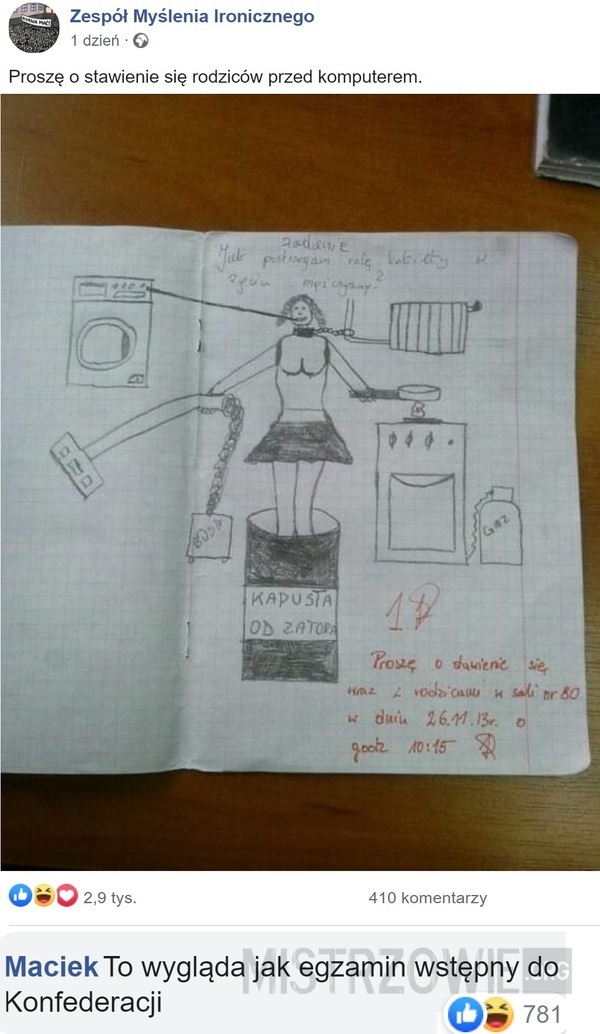 Zespół Myślenia Ironicznego
1 dzień ·
Proszę o stawienie się rodziców przed komputerem.
zadanie
Jak postrzegam rolę kobiety w
życiu mężczyzny?
GAZ
KAPUSTA
OD ZATOPA
1
Proszę o stawienie się
wraz z rodzicami w sali nr 80
w dniu 26.11.13r. o
godz 10:15
2,9 tys.
410 komentarzy
Maciek To wygląda jak egzamin wstępny do
Konfederacji
781
MISTRZOWIE.ORG